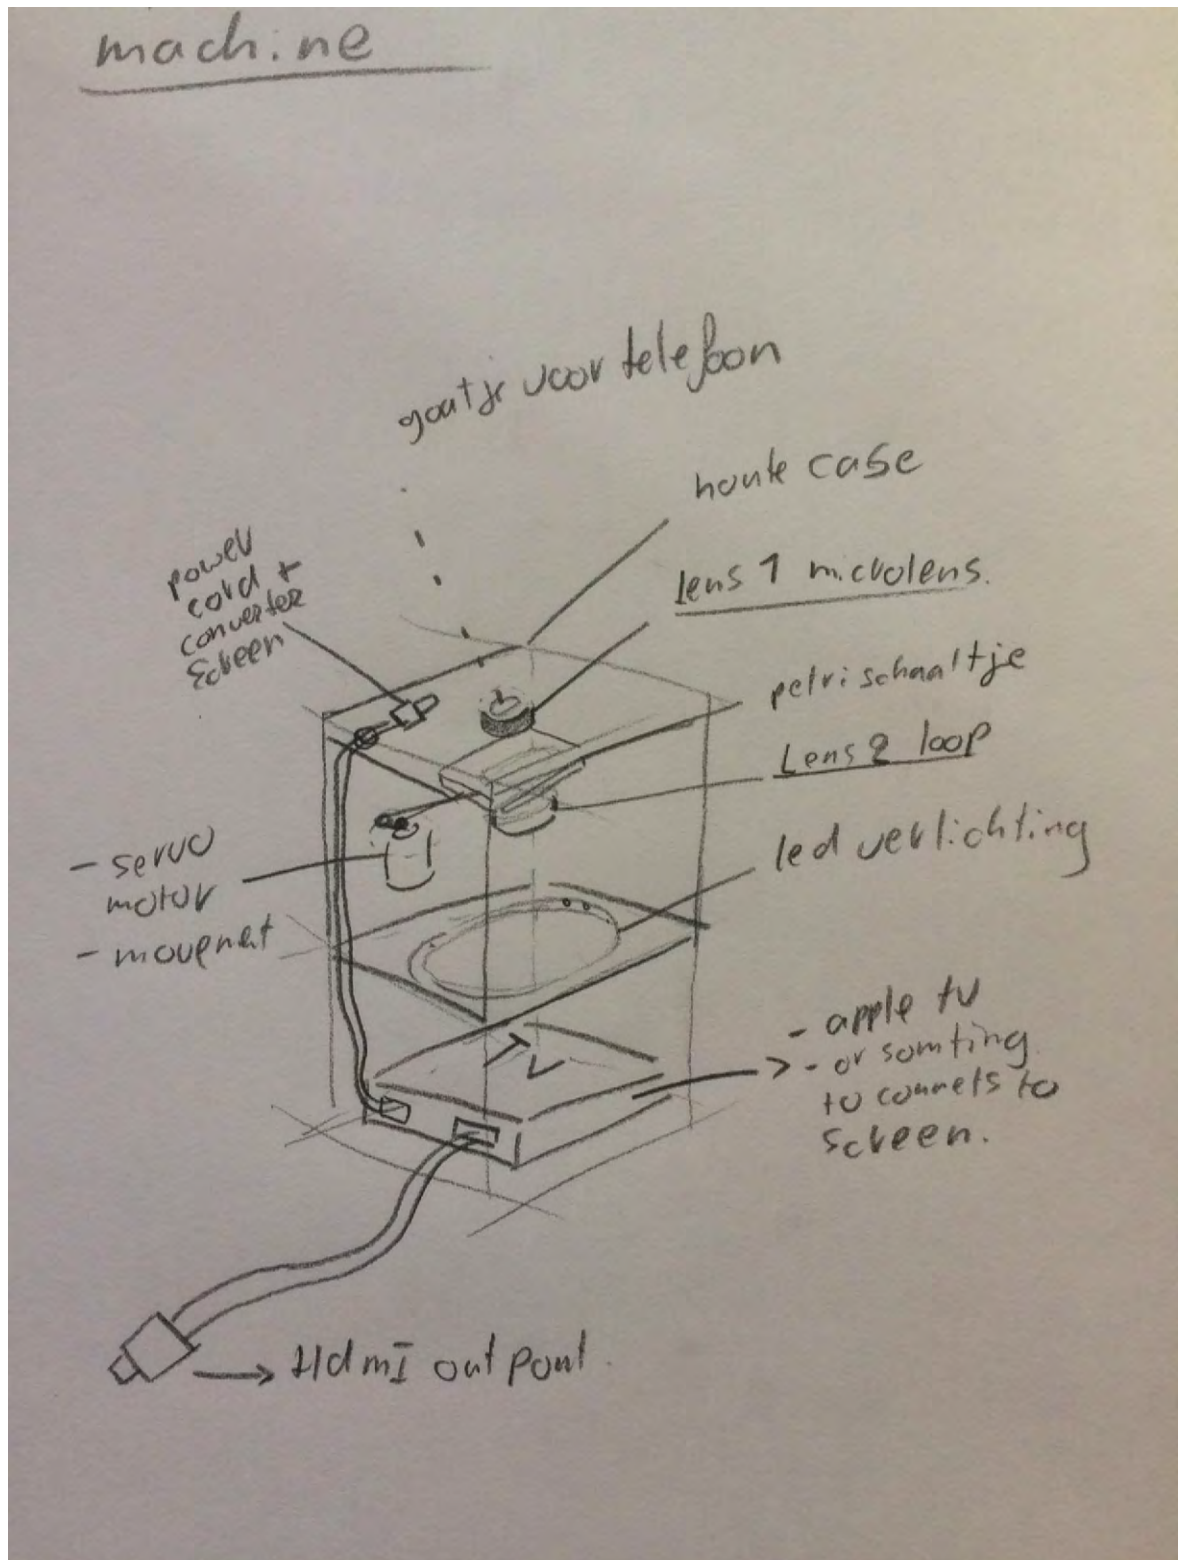 machine
gaatje voor telefoon
houte case
power
cord +
converter
screen
Lens 1 microlens.
petrischaaltje
Lens 2 loop
- servo
motor
- movemet
led verlichting
TV
- apple tv
- or somting
to connets to
screen.
HdmI out pout.